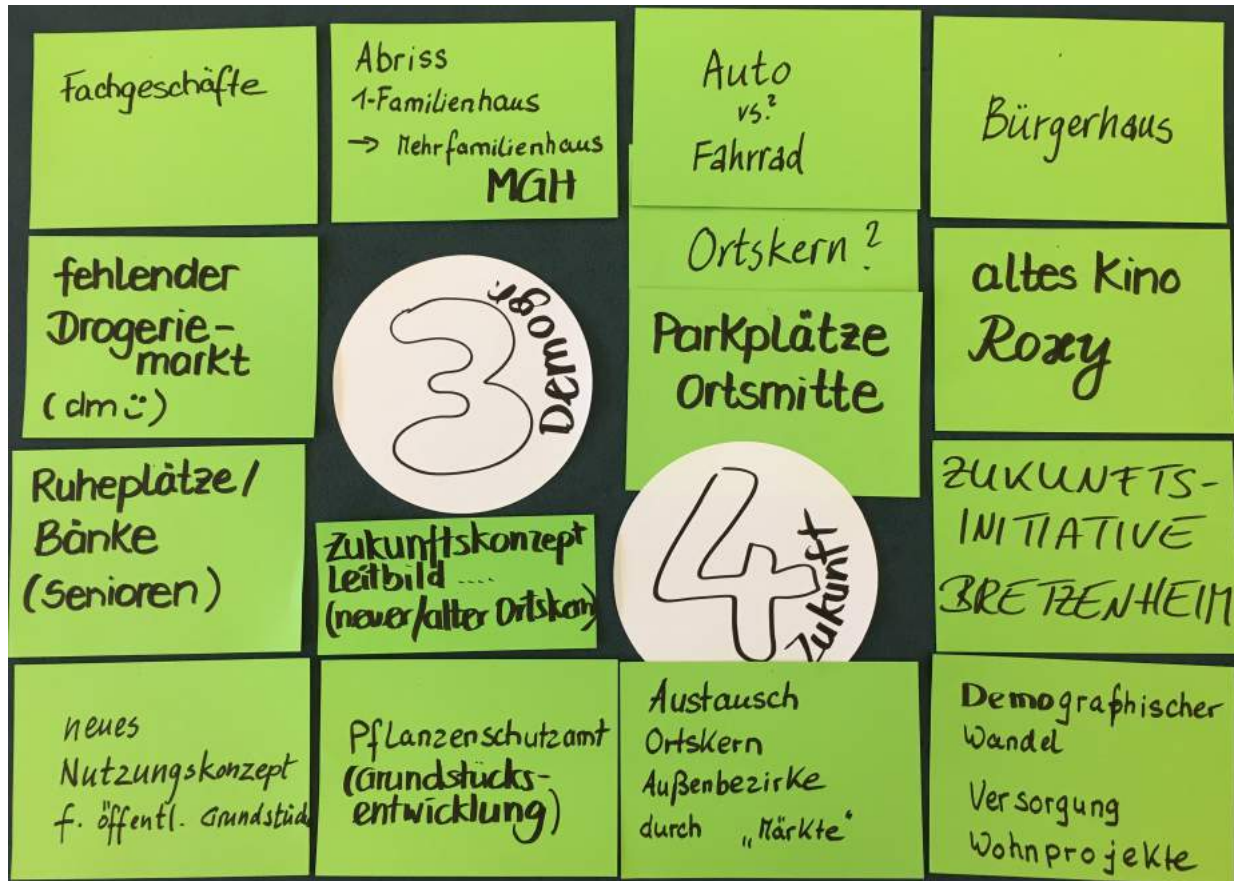 Fachgeschäfte
Abriss
1-Familienhaus
→ Mehrfamilienhaus
MGH
Auto
vs.?
Fahrrad
Bürgerhaus
fehlender
Drogerie-
markt
(dm ü)
3
Demogr.
Ortskern?
Parkplätze
Ortsmitte
altes Kino
Roxy
Ruheplätze/
Bänke
(Senioren)
Zukunftskonzept
Leitbild ....
(neuer/alter Ortskern)
4
Zukunft
ZUKUNFTS-
INITIATIVE
BRETZENHEIM
neues
Nutzungskonzept
f. öffentl. Grundstücke
Pflanzenschutzamt
(Grundstücks-
entwicklung)
Austausch
Ortskern
Außenbezirke
durch „Märkte"
Demographischer
Wandel
Versorgung
Wohnprojekte